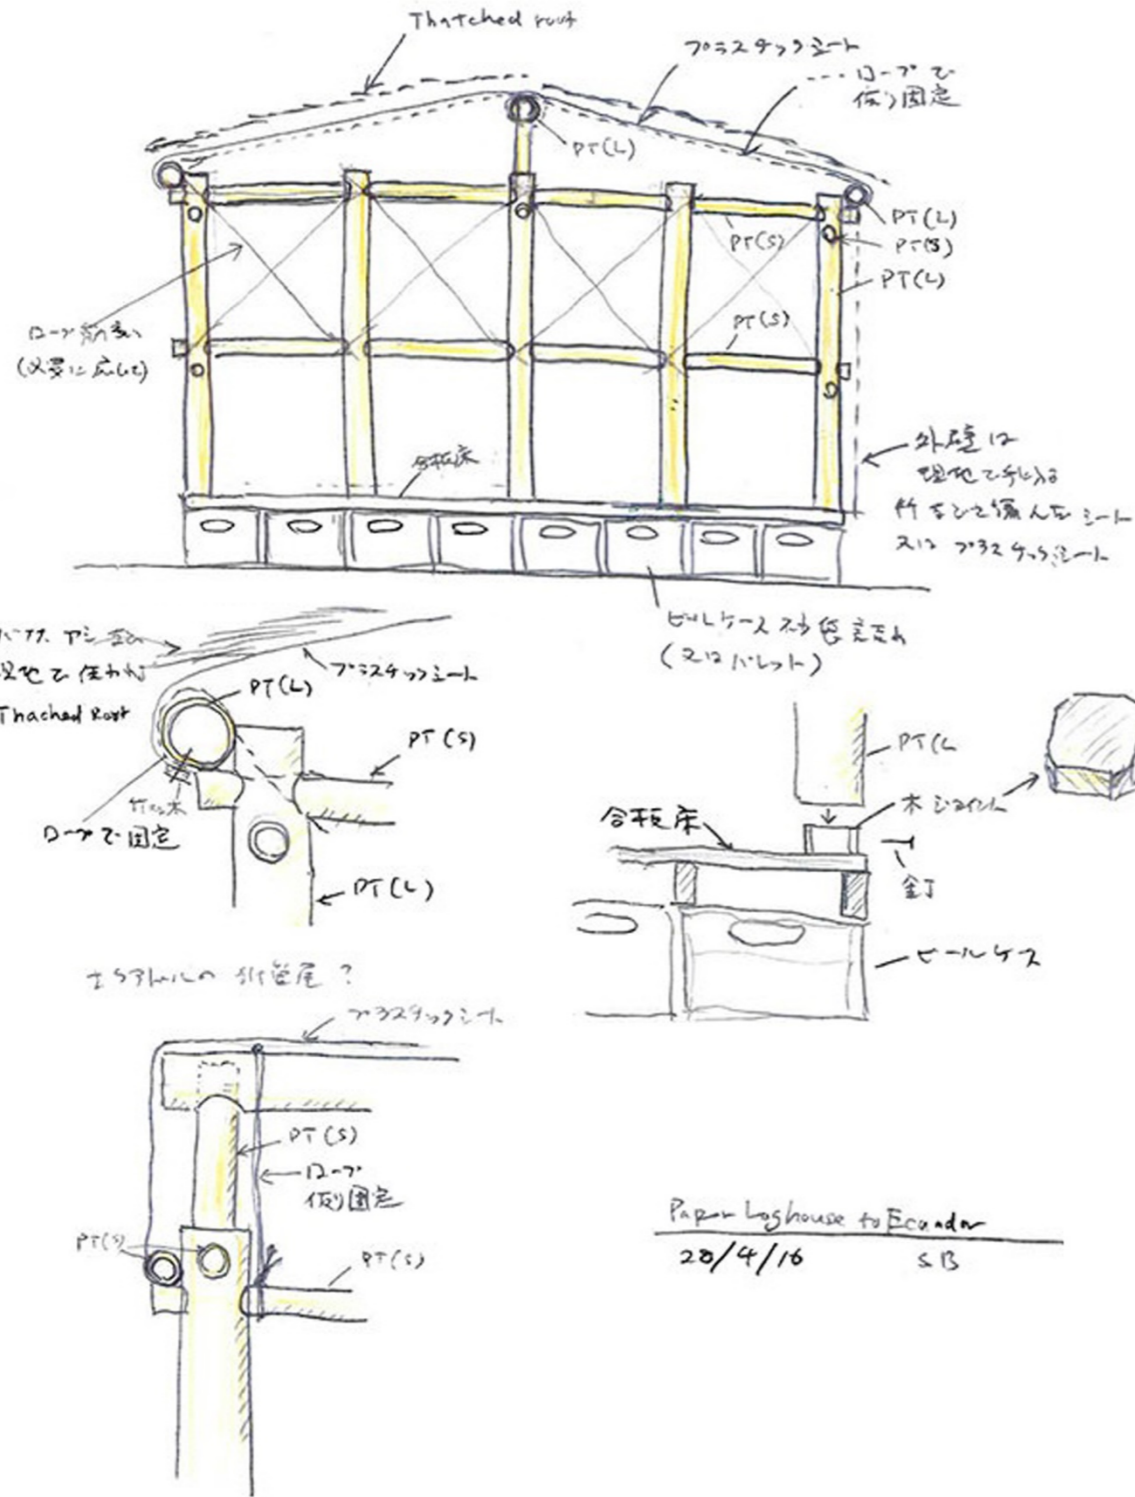 Thatched roof
プラスチックシート
---- ロープで
仮り固定
PT(L)
PT(L)
PT(S)
PT(L)
PT(S)
PT(S)
ロープ筋違い
(必要に応じて)
合板床
外壁は
現地で手に入る
竹などで編んだシート
又は プラスチックシート
ビールケース
(又はパレット)
バナナ、アシ
現地で使われる
Thached Roof
プラスチックシート
PT(L)
PT(S)
ロープで固定
PT(L)
PT(L
木ジョイント
合板床
釘
ビールケース
プラスチックシート
PT(S)
ロープ
仮り固定
PT(S)
PT(S)
Paper Loghouse to Ecuador
20/4/16 SB